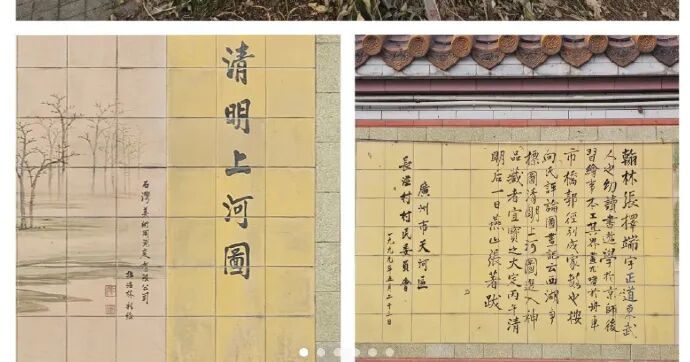 清明上河圖
石灣美術
有限公司
翰林張擇端字正道東武
人也幼讀書遊學於京師後
習繪事本工其界畫尤嗜於舟車
市橋郭徑別成家數也按
向氏評論圖畫記云西湖爭
標圖清明上河圖選入神
品藏者宜寶之大定丙午清
明后一日燕山張著跋
廣州市天河區
長湴村村民委員會
一九九九年五月二十二日